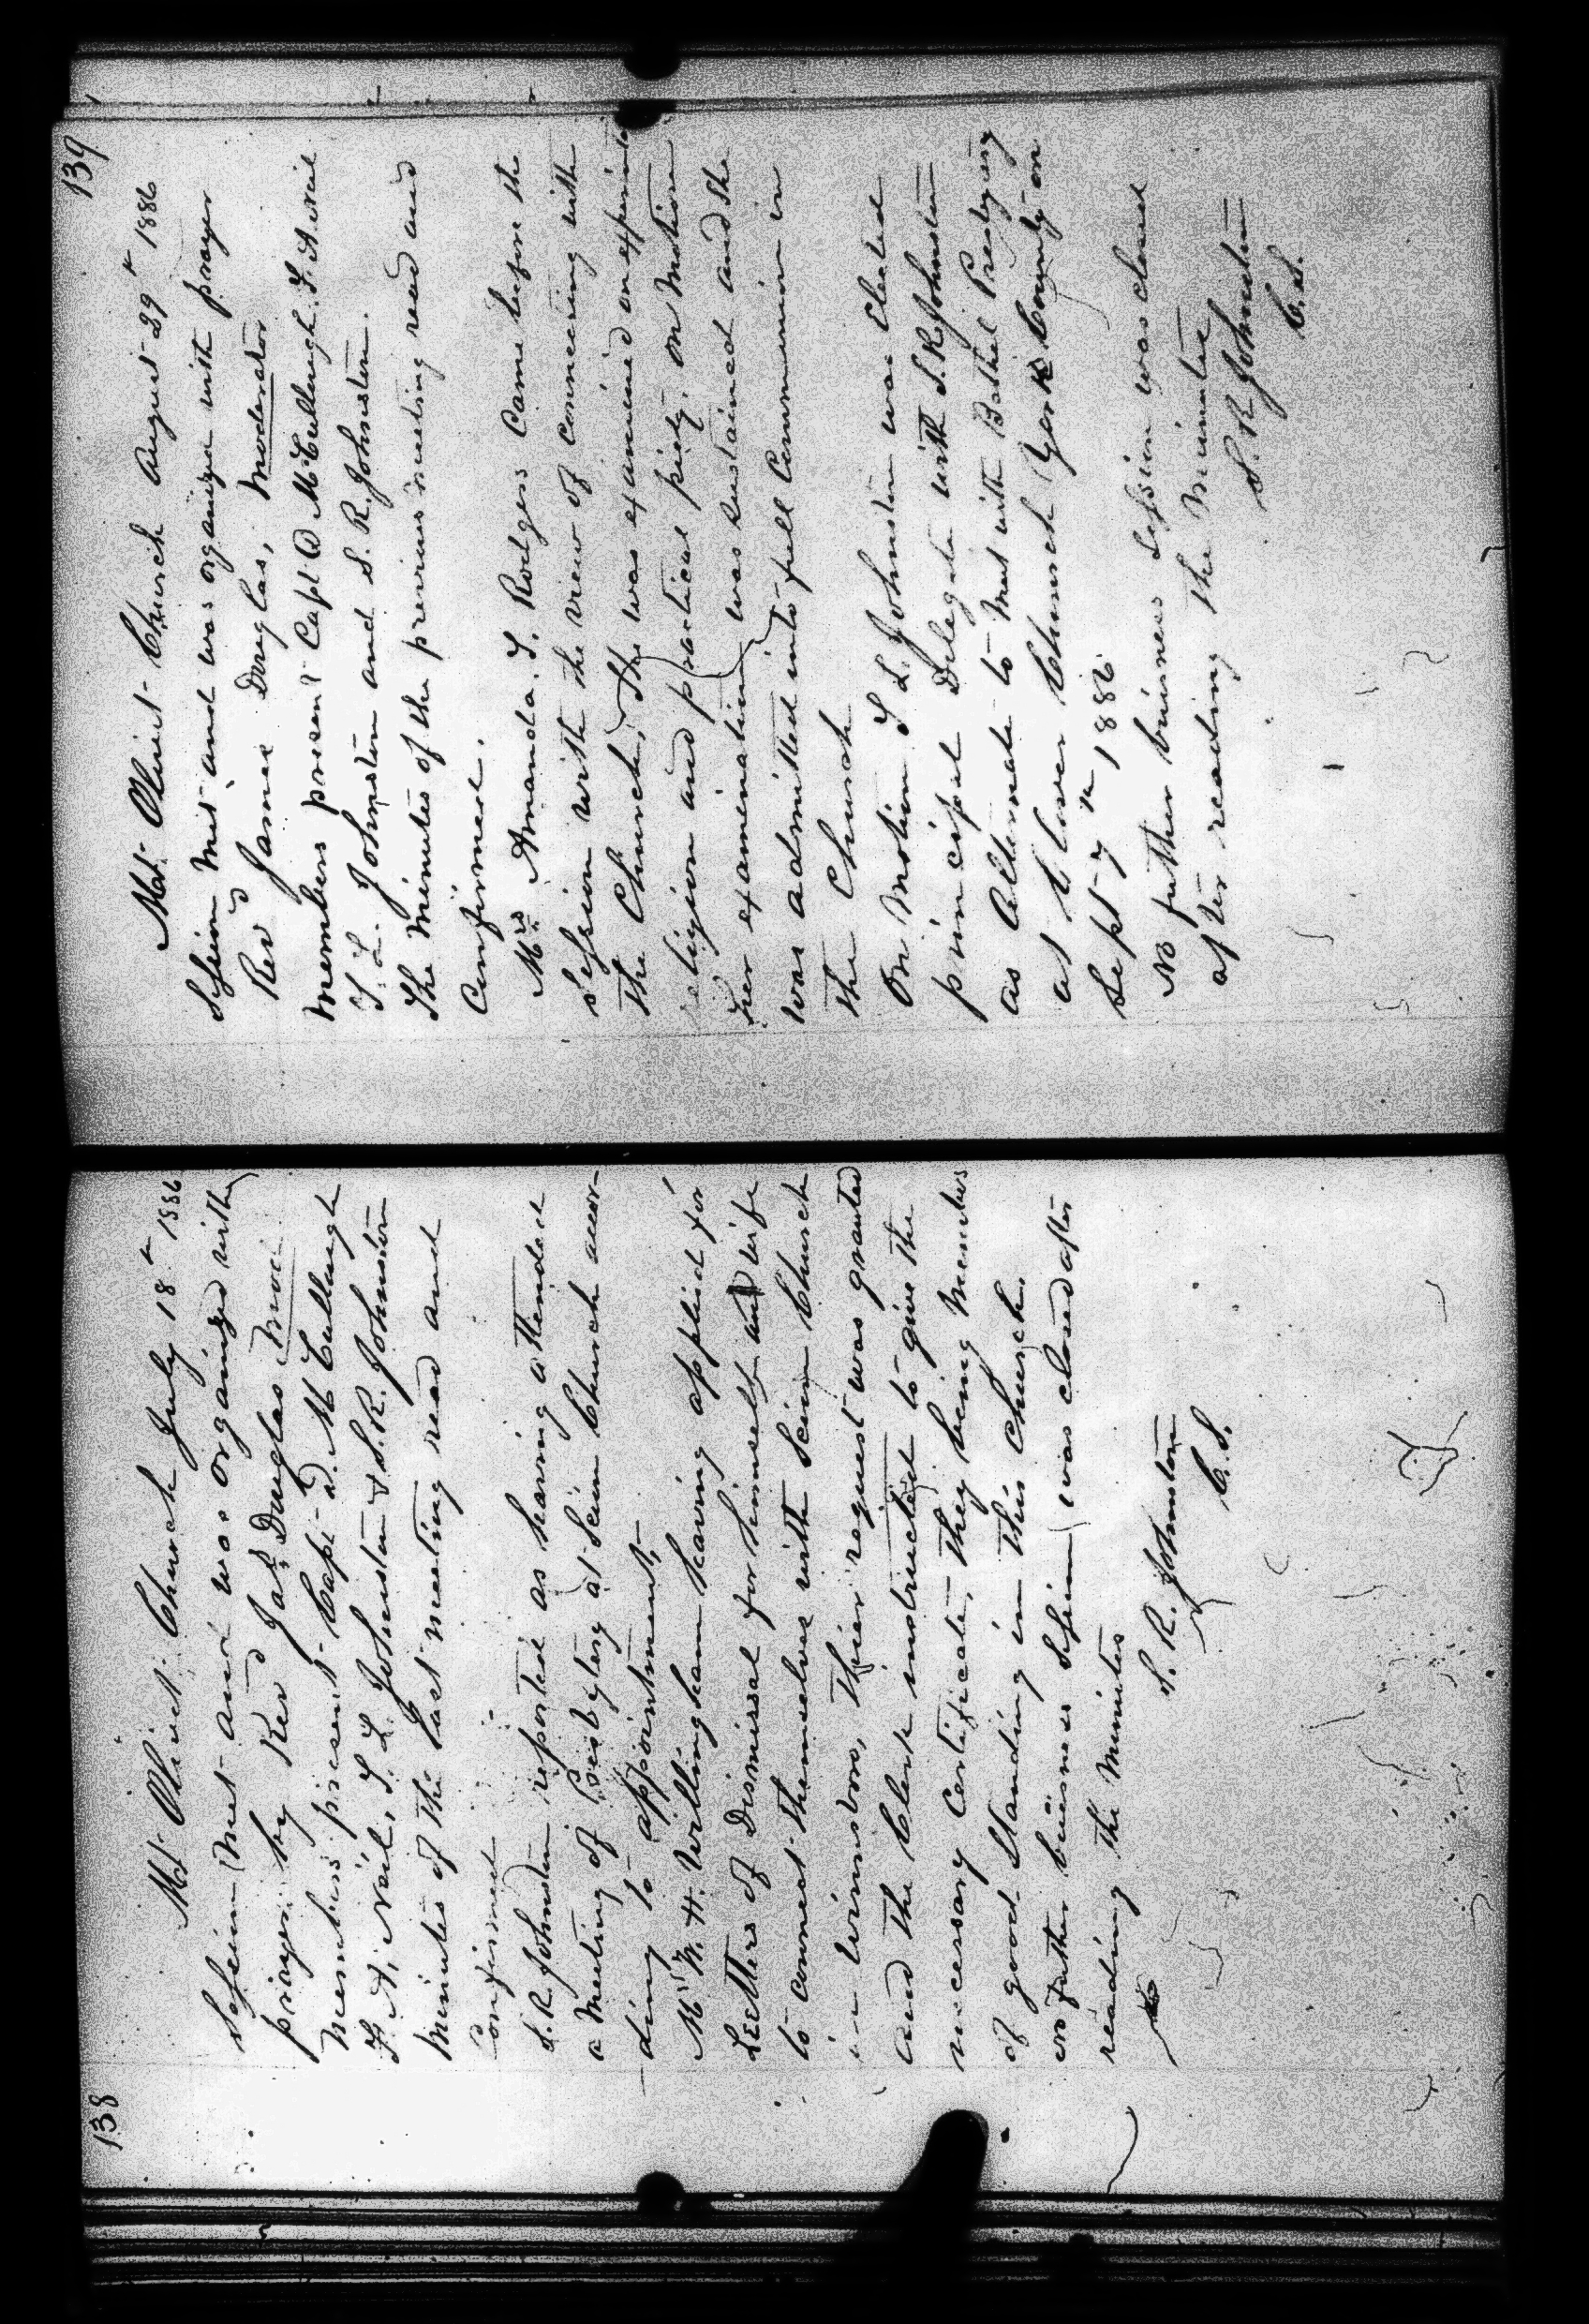 138
Mt. Olivet Church July 18th 1886
Session Met and was organized with
prayer by Rev Jas Douglas Mod.
Members present Capt D. McCullough
T. A. Neil, T. L. Johnston & S. R. Johnston
Minutes of the last meeting read and
Confirmed
S. R. Johnston reported as having attended
a Meeting of Presbytery at Scion Church accor-
ding to appointment.
Mr M. H. Willingham having applied for
Letters of Dismissal for himself and wife
to connect themselves with Scion Church
in Winnsboro, Thier request was granted
and the Clerk instructed to give the
necessary Certificate, they being Members
of good Standing in this Church.
No futher business Session was closed after
reading the Minutes
S. R. Johnston
C. S.
139
Mt. Olivet Church August 29th 1886
Session Met and was organized with prayer
Rev James Douglas, Moderator
Members present Capt D McCullough T. A Neil
T. L. Johnston and S. R. Johnston.
The Minutes of the previous meeting read and
Confirmed.
Mrs Amanda. T. Rodgers Came before the
Session with the view of connecting with
the Church, She was examined on experimental
religion and practical piety. On Motion
her examination was sustained and she
was admitted into full Communion in
the Church
On Motion T. L. Johnston was Elected
principal Delegate with S. R. Johnston
as Alternate to Met with Bethel Presbytery
at Clover Church York County on
Sept 7th 1886
No futher business Session was closed
after reading the Minutes
S. R. Johnston
C. S.